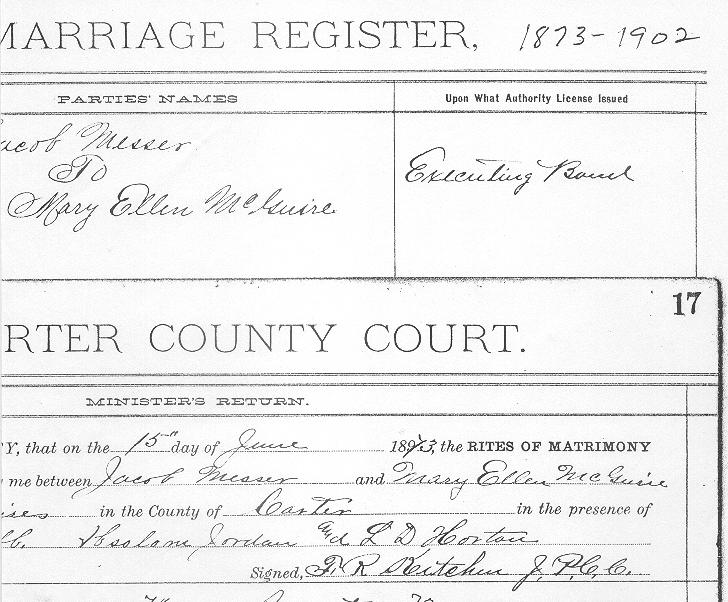 MARRIAGE REGISTER, 1873-1902
PARTIES' NAMES
Upon What Authority License Issued
acob Messer
To
Mary Ellen McGuire
Executing Bond
17
RTER COUNTY COURT.
MINISTER'S RETURN.
Y, that on the 15" day of June 1893, the RITES OF MATRIMONY
me between Jacob Messer and Mary Ellen McGuire
ises in the County of Carter in the presence of
Absolam Jordan and L D Horton
Signed, F. R. Kitchen J. P. C. C.